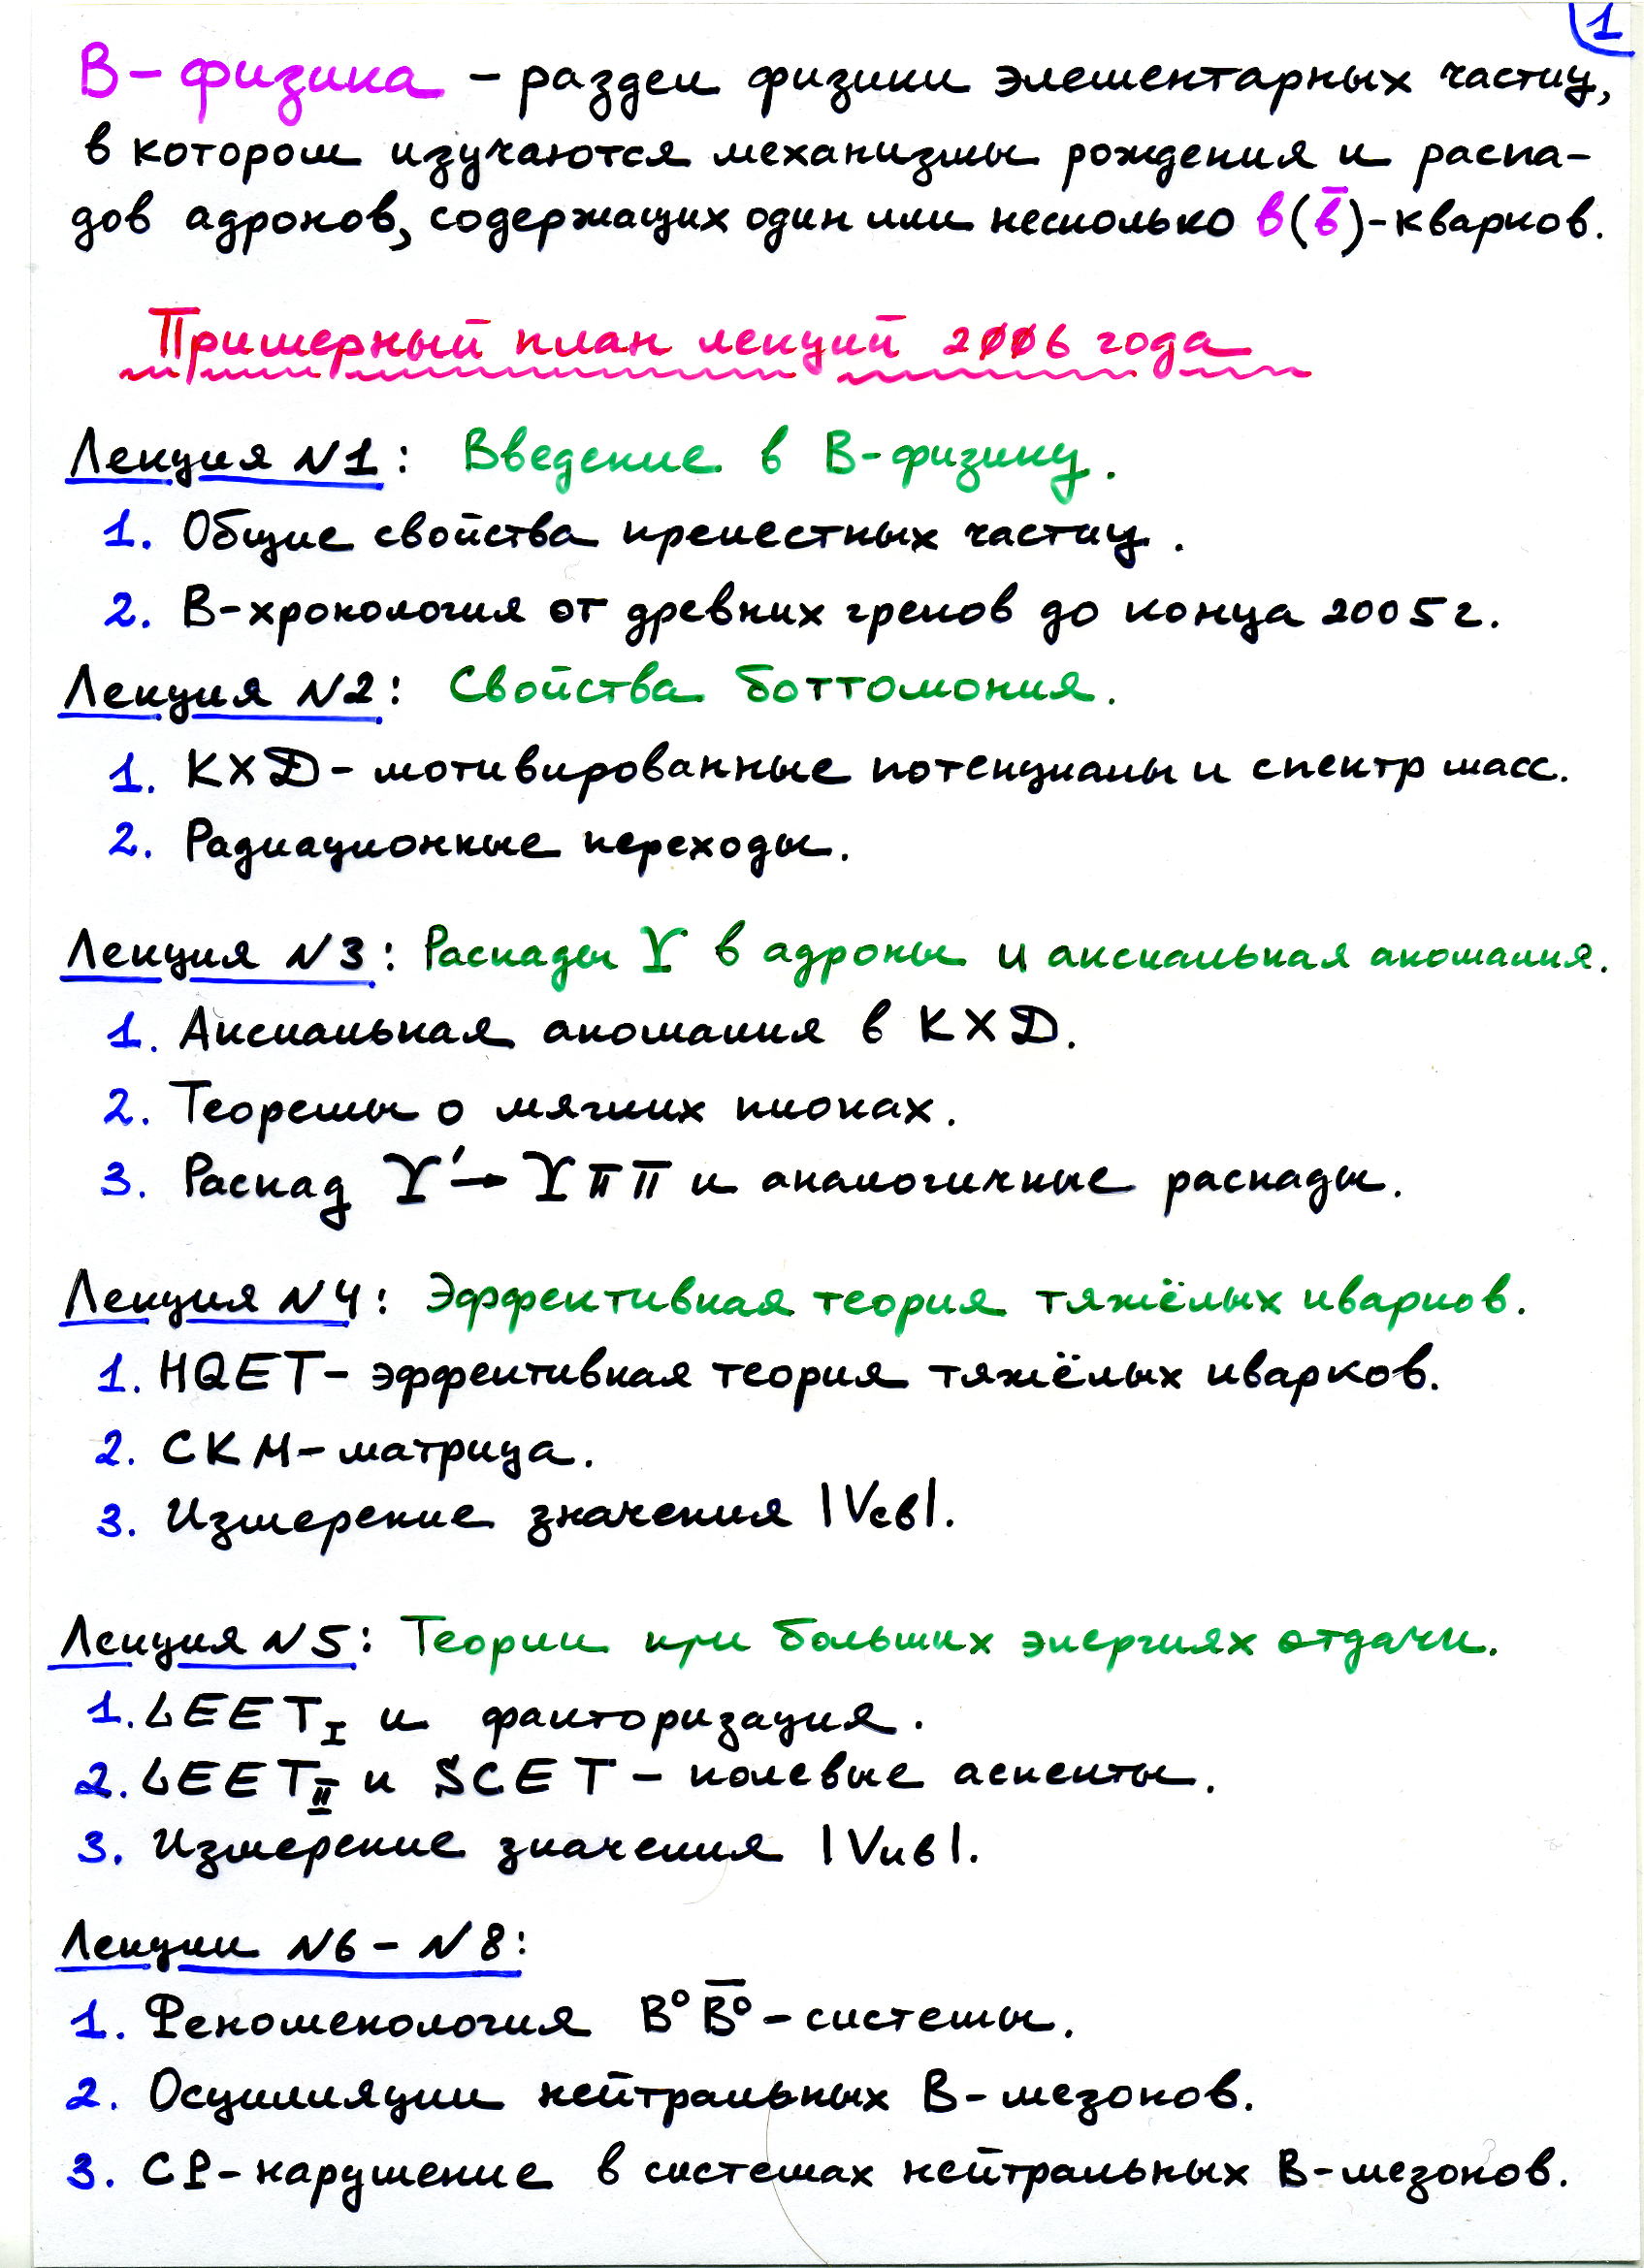 1
B-физика – раздел физики элементарных частиц,
в котором изучаются механизмы рождения и распа-
дов адронов, содержащих один или несколько b(b̅)-кварков.
Примерный план лекций 2006 года
Лекция N1: Введение в B-физику.
1. Общие свойства прелестных частиц.
2. B-хронология от древних греков до конца 2005 г.
Лекция N2: Свойства боттомония.
1. КХД-мотивированные потенциалы и спектр масс.
2. Радиационные переходы.
Лекция N3: Распады ϒ в адроны и аксиальная аномалия.
1. Аксиальная аномалия в КХД.
2. Теоремы о мягких пионах.
3. Распад ϒ′→ϒππ и аналогичные распады.
Лекция N4: Эффективная теория тяжёлых кварков.
1. HQET – эффективная теория тяжёлых кварков.
2. CKM-матрица.
3. Измерение значения |Vcb|.
Лекция N5: Теории при больших энергиях отдачи.
1. LEET_I и факторизация.
2. LEET_II и SCET – полевые аспекты.
3. Измерение значения |Vub|.
Лекции N6 – N8:
1. Феноменология B⁰B̅⁰-системы.
2. Осцилляции нейтральных B-мезонов.
3. CP-нарушение в системах нейтральных B-мезонов.